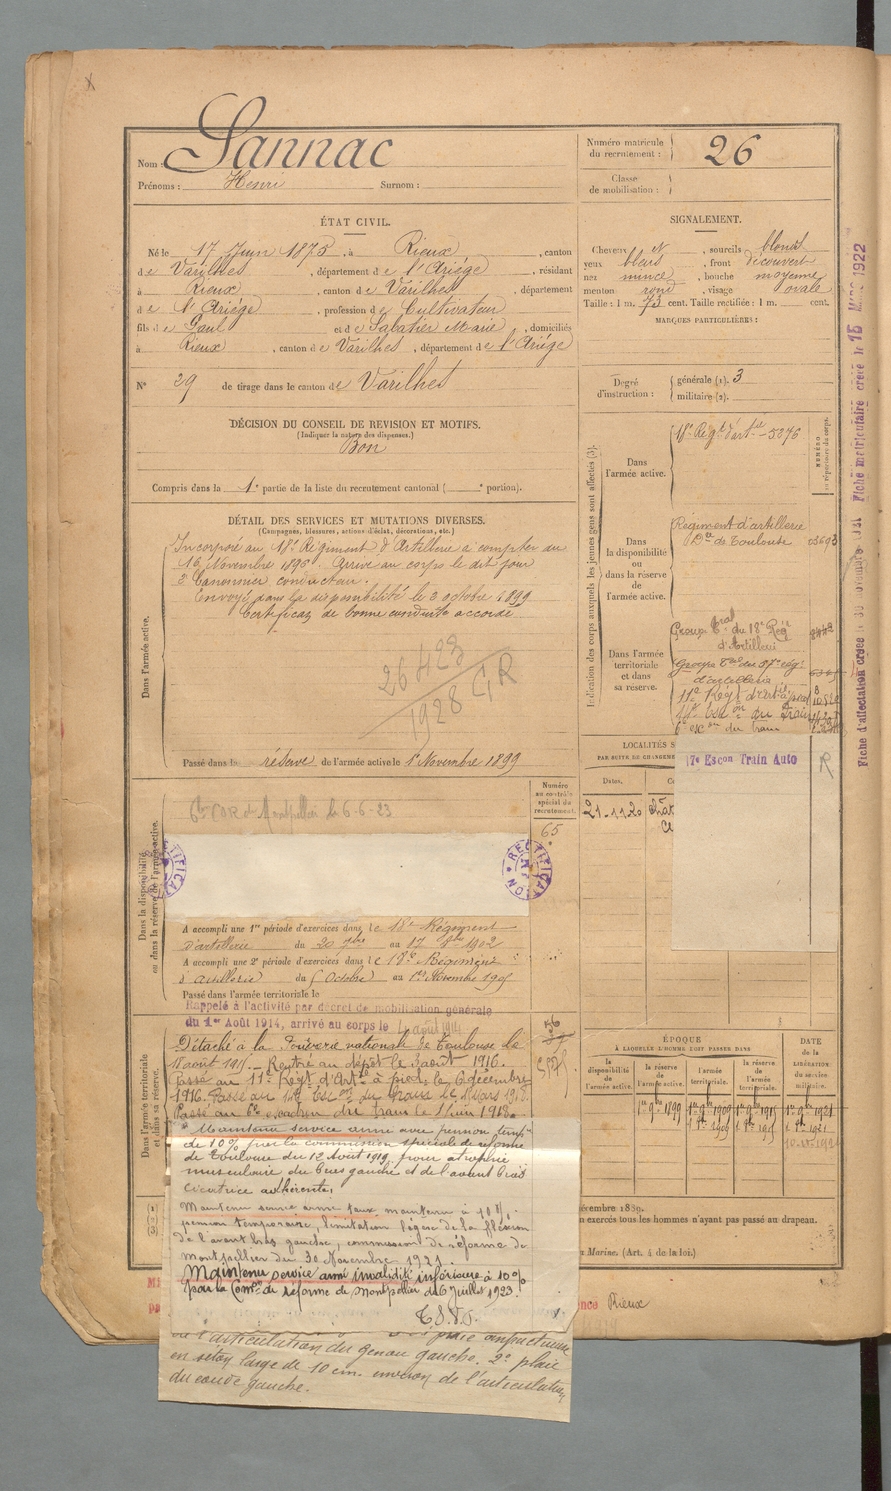 Nom : Sannac
Prénoms : Henri Surnom :
Numéro matricule du recrutement : 26
Classe de mobilisation :
ÉTAT CIVIL.
Né le 17 Juin 1875, à Rieux, canton
de Varilhes, département de l'Ariège, résidant
à Rieux, canton de Varilhes, département
de l'Ariège, profession de Cultivateur
fils de Paul et de Sabatier Marie, domiciliés
à Rieux, canton de Varilhes, département de l'Ariège
N° 29 de tirage dans le canton de Varilhes
DÉCISION DU CONSEIL DE REVISION ET MOTIFS.
(Indiquer la nature des dispenses.)
Bon
Compris dans la 1e partie de la liste du recrutement cantonal ( e portion).
SIGNALEMENT.
Cheveux et, sourcils blonds
yeux bleus, front découvert
nez mince, bouche moyenne
menton rond, visage ovale
Taille : 1 m. 73 cent. Taille rectifiée : 1 m. cent.
MARQUES PARTICULIÈRES :
Degré d'instruction : générale (1). 3
militaire (2).
DÉTAIL DES SERVICES ET MUTATIONS DIVERSES.
(Campagnes, blessures, actions d'éclat, décorations, etc.)
Dans l'armée active.
Incorporé au 18e Régiment d'Artillerie à compter du
16 Novembre 1896. Arrivé au corps le dit jour
2e Canonnier conducteur.
Envoyé dans la disponibilité le 2 octobre 1899
Certificat de bonne conduite accordé
26423
1928 GR
Passé dans la réserve de l'armée active le 1er Novembre 1899
Indication des corps auxquels les jeunes gens sont affectés (3).
NUMÉRO
au répertoire du corps.
Dans l'armée active.
18e Régt d'artie - 5276
Dans la disponibilité ou dans la réserve de l'armée active.
Régiment d'artillerie
Don de Toulouse
Dans l'armée territoriale et dans sa réserve.
Groupe Tal du 18e Regt
d'Artillerie
Groupe Tal du 57e rég.
d'artillerie
11e Régt d'artie à pied
6e esc on du train
17e Escon Train Auto
R
LOCALITÉS S
PAR SUITE DE CHANGEME
Dates.
21.11.20
Fiche matriculaire créée le 15 Mars 1922
Numéro
au contrôle
spécial du
recrutement.
65
Dans la disponibilité
ou dans la réserve de l'armée active.
Montpellier le 6-6-23
RECTIFICATION
A accompli une 1re période d'exercices dans le 18e Régiment
d'artillerie du 20 7bre au 17 8bre 1902
A accompli une 2e période d'exercices dans le 18e Régiment
d'artillerie du 5 Octobre au 1er Novembre 1905
Passé dans l'armée territoriale le
Rappelé à l'activité par décret de mobilisation générale
du 1er Août 1914, arrivé au corps le 4 août 1914
Dans l'armée territoriale
et dans sa réserve.
Détaché à la Poudrerie nationale de Toulouse le
août 1915. — Rentré au dépôt le 3 août 1916.
Passé au 11e Régt d'Artie à pied, le 6 décembre
1916. Passé au Esc on du Train le Mars 1918.
Passé au 6e escadron du train le 1 juin 1918.
Maintenu service armé avec pension temp.
de 10% par la commission spéciale de réforme
de Toulouse du 12 Août 1919, pour atrophie
musculaire du bras gauche et de l'avant bras
cicatrice adhérente,
Maintenu service armé taux maintenu à 10%
pension temporaire, limitation légère de la flexion
de l'avant bras gauche, commission de réforme de
Montpellier du 30 Novembre 1921.
Maintenu service armé invalidité inférieure à 10%
par la Comon de réforme de Montpellier du 6 Juillet 1923.
de l'articulation du genou gauche. 2° plaie
en seton large de 10 cm. environ de l'articulation
du coude gauche.
ÉPOQUE
À LAQUELLE L'HOMME DOIT PASSER DANS
DATE
de la
LIBÉRATION
du service
militaire.
la disponibilité de l'armée active.
la réserve de l'armée active.
l'armée territoriale.
la réserve de l'armée territoriale.
1er 9bre 1899 1er 9bre 1909 1er 9bre 1915 1er 9bre 1921
écembre 1889.
n exercés tous les hommes n'ayant pas passé au drapeau.
Marine. (Art. 4 de la loi.)
ence Rieux